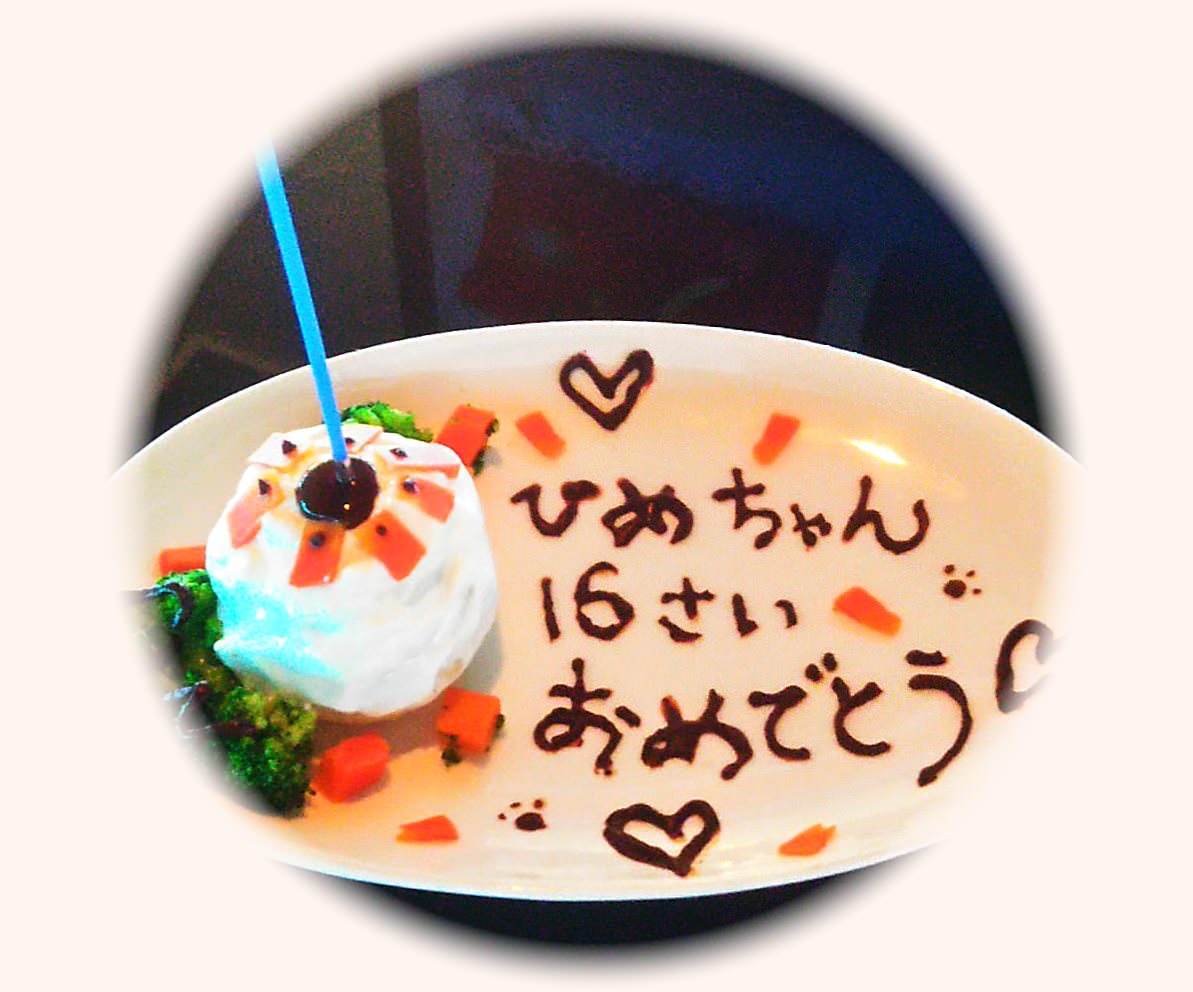 ひめちゃん
16さい
おめでとう